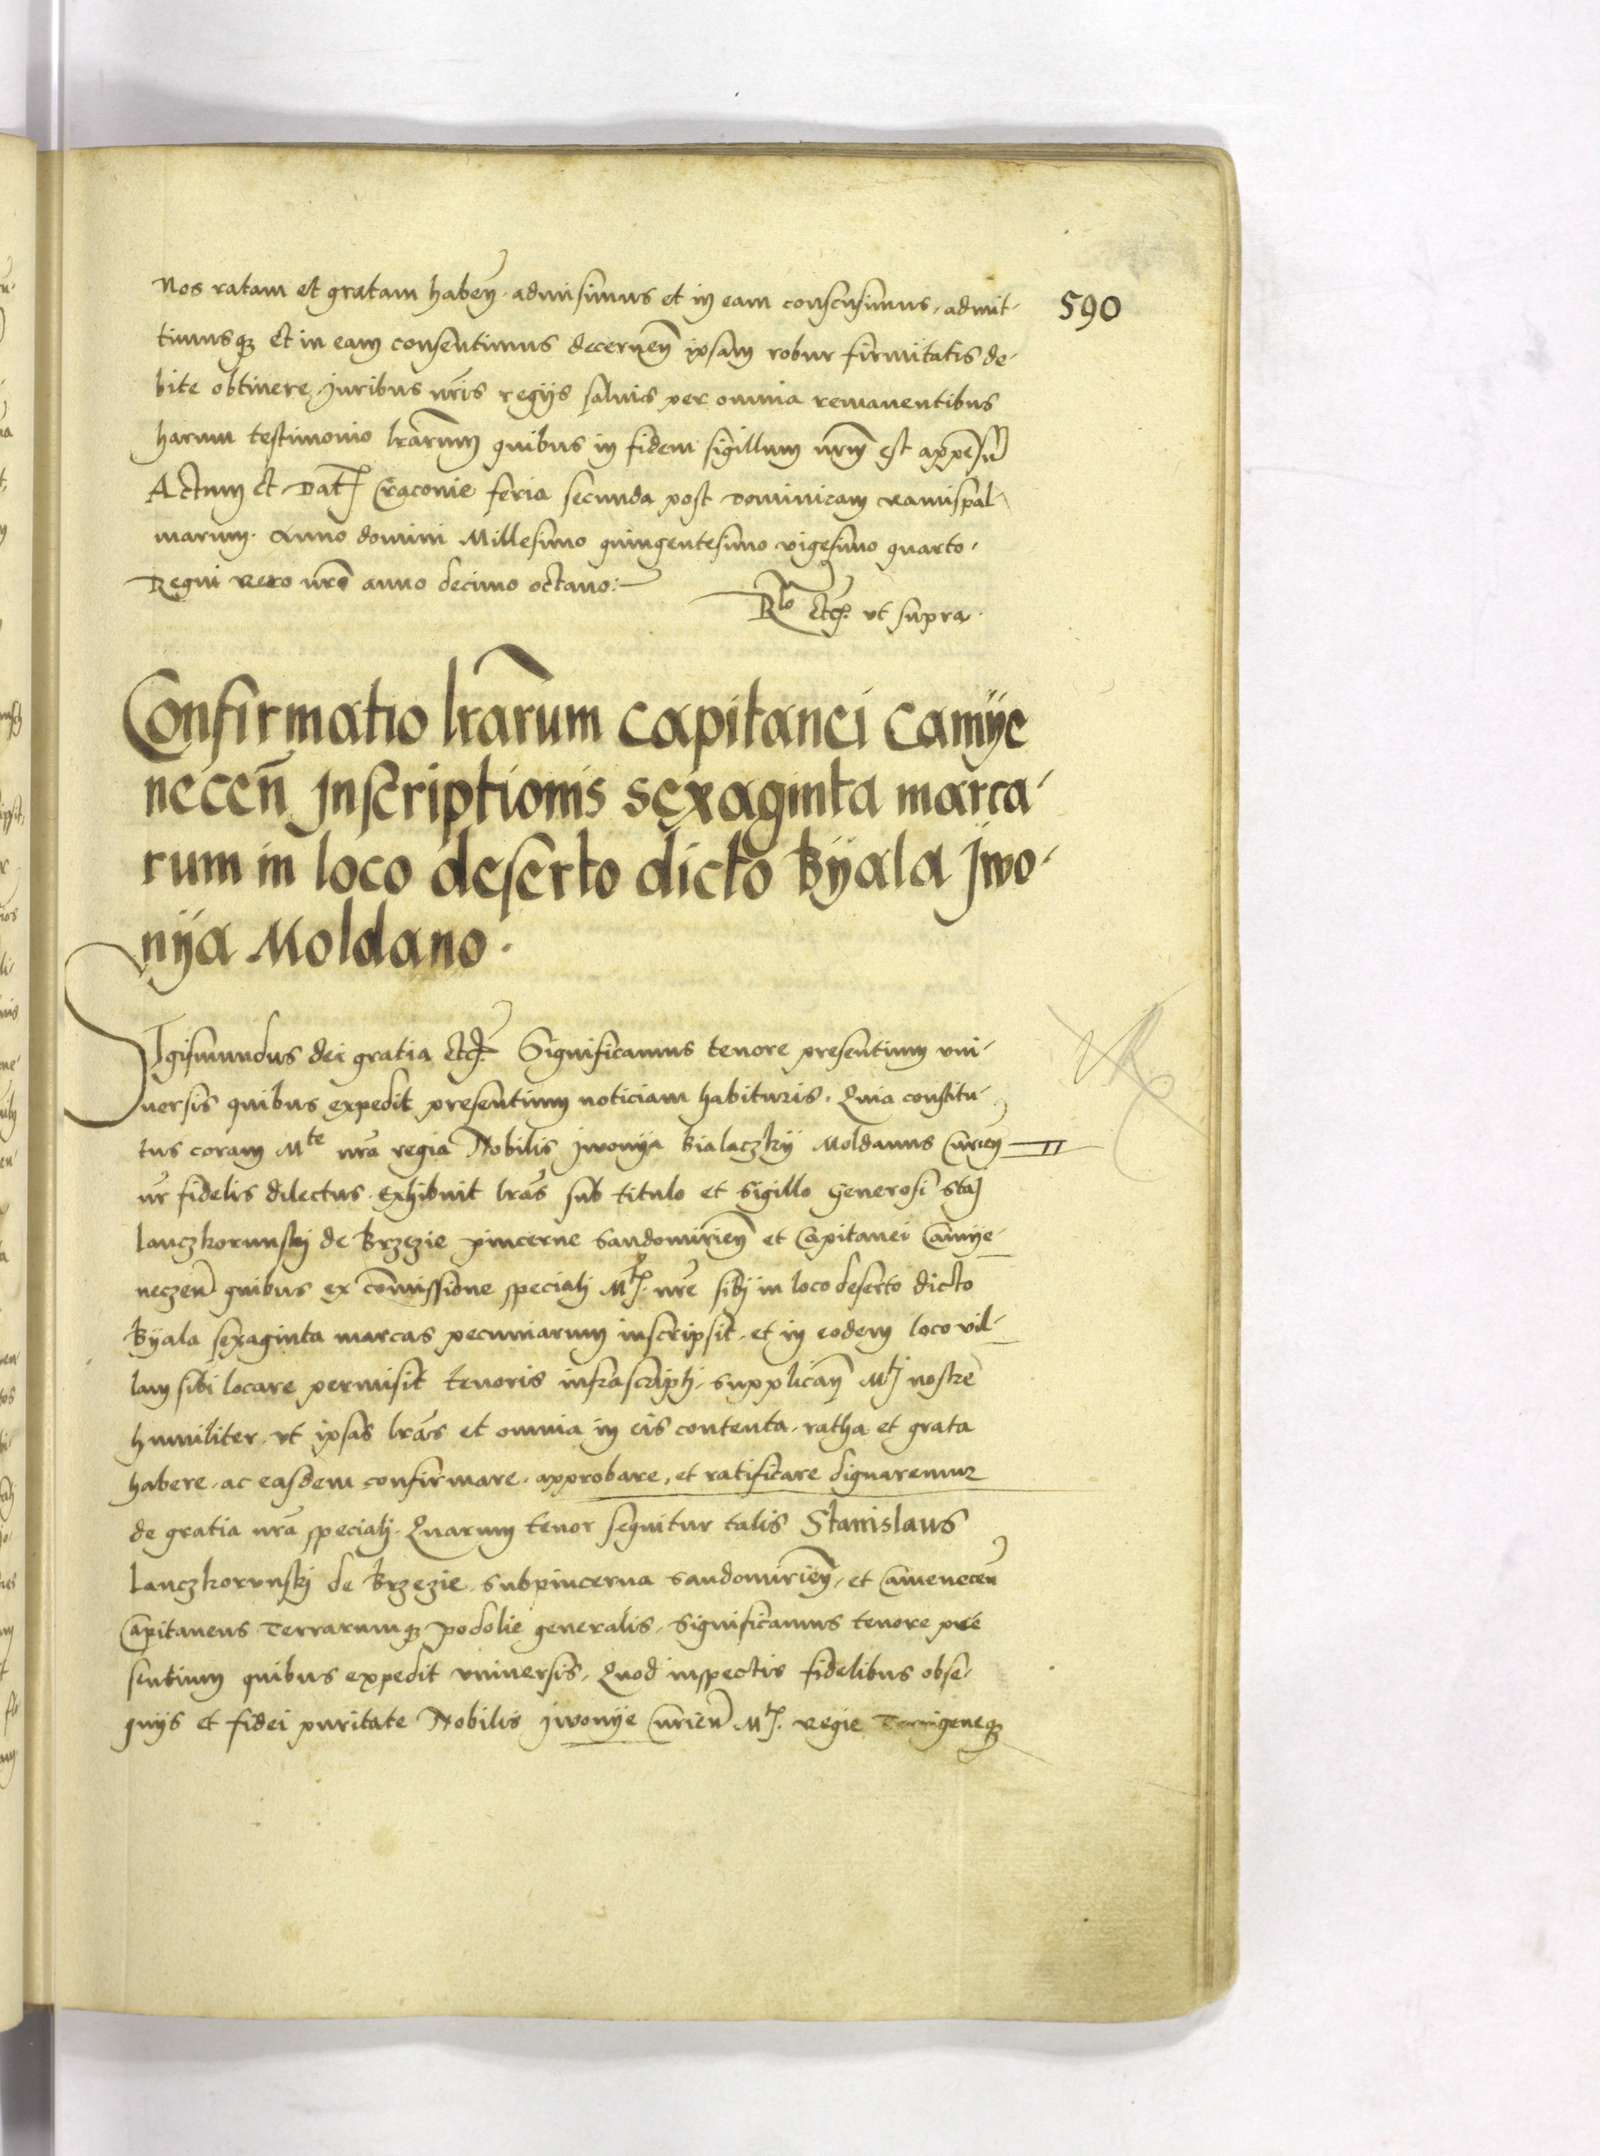 nos ratam et gratam haben̄ · admisimus et in eam consensimus, admit-
590
timusqꝫ et in eam consentimus decernen̄ ipsam robur firmitatis de-
bite obtinere, Juribus nr̄is regijs saluis per omnia remanentibus
harum testimonio lr̄arum quibus in fidem sigillum nr̄m est appēsū
Actum et Dat̄ Cracovie feria secunda post Dominicam ramispal-
marum. Anno domini Millesimo quingentesimo vigesimo quarto.
Regni vero nr̄i anno decimo octavo:
Rlo etc. ut supra.
Confirmatio lr̄arum capitanei camÿe
necen̄ Jnscriptionis sexaginta marca-
rum in loco deserto dicto Byala Jwo-
nÿa Moldano.
Sigismundus dei gratia etc. Significamus tenore presentium uni-
versis quibus expedit presentium noticiam habituris. Quia constitu-
tus coram Mte nr̄a regia Nobilis Jwonÿa Bialaczkÿ Moldanus Curien̄
nr̄ fidelis dilectus. exhibuit lr̄as sub titulo et sigillo Generosi Staj
Lanczkorunskj de Brzezie pincerne Sandomirien̄ et Capitanei Camÿe-
neczen̄ quibus ex cōmissione specialj Mtis. nr̄e sibj in loco deserto dicto
Byala sexaginta marcas pecuniarum inscripsit, et in eodem loco vil-
lam sibi locare permisit tenoris infrascriptj, supplican̄ Mtj nostre
humiliter, ut ipsas lr̄as et omnia in eis contenta, ratha et grata
habere, ac easdem confirmare, approbare, et ratificare dignaremur
de gratia nr̄a specialj. Quarum tenor sequitur talis Stanislaus
Lanczkorunskj de Brzezie, Subpincerna Sandomirien̄, et Camenecen̄
Capitaneus Terrarumqꝫ Podolie generalis, Significamus tenore pre
sentium quibus expedit universis, Quod inspectis fidelibus obse-
quijs et fidei puritate Nobilis Jwonÿe Curien̄ Mtis. Regie Terrigeneqꝫ